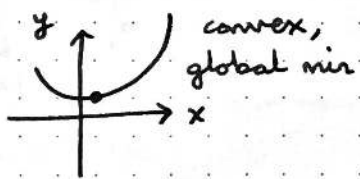 y
convex,
global min
x